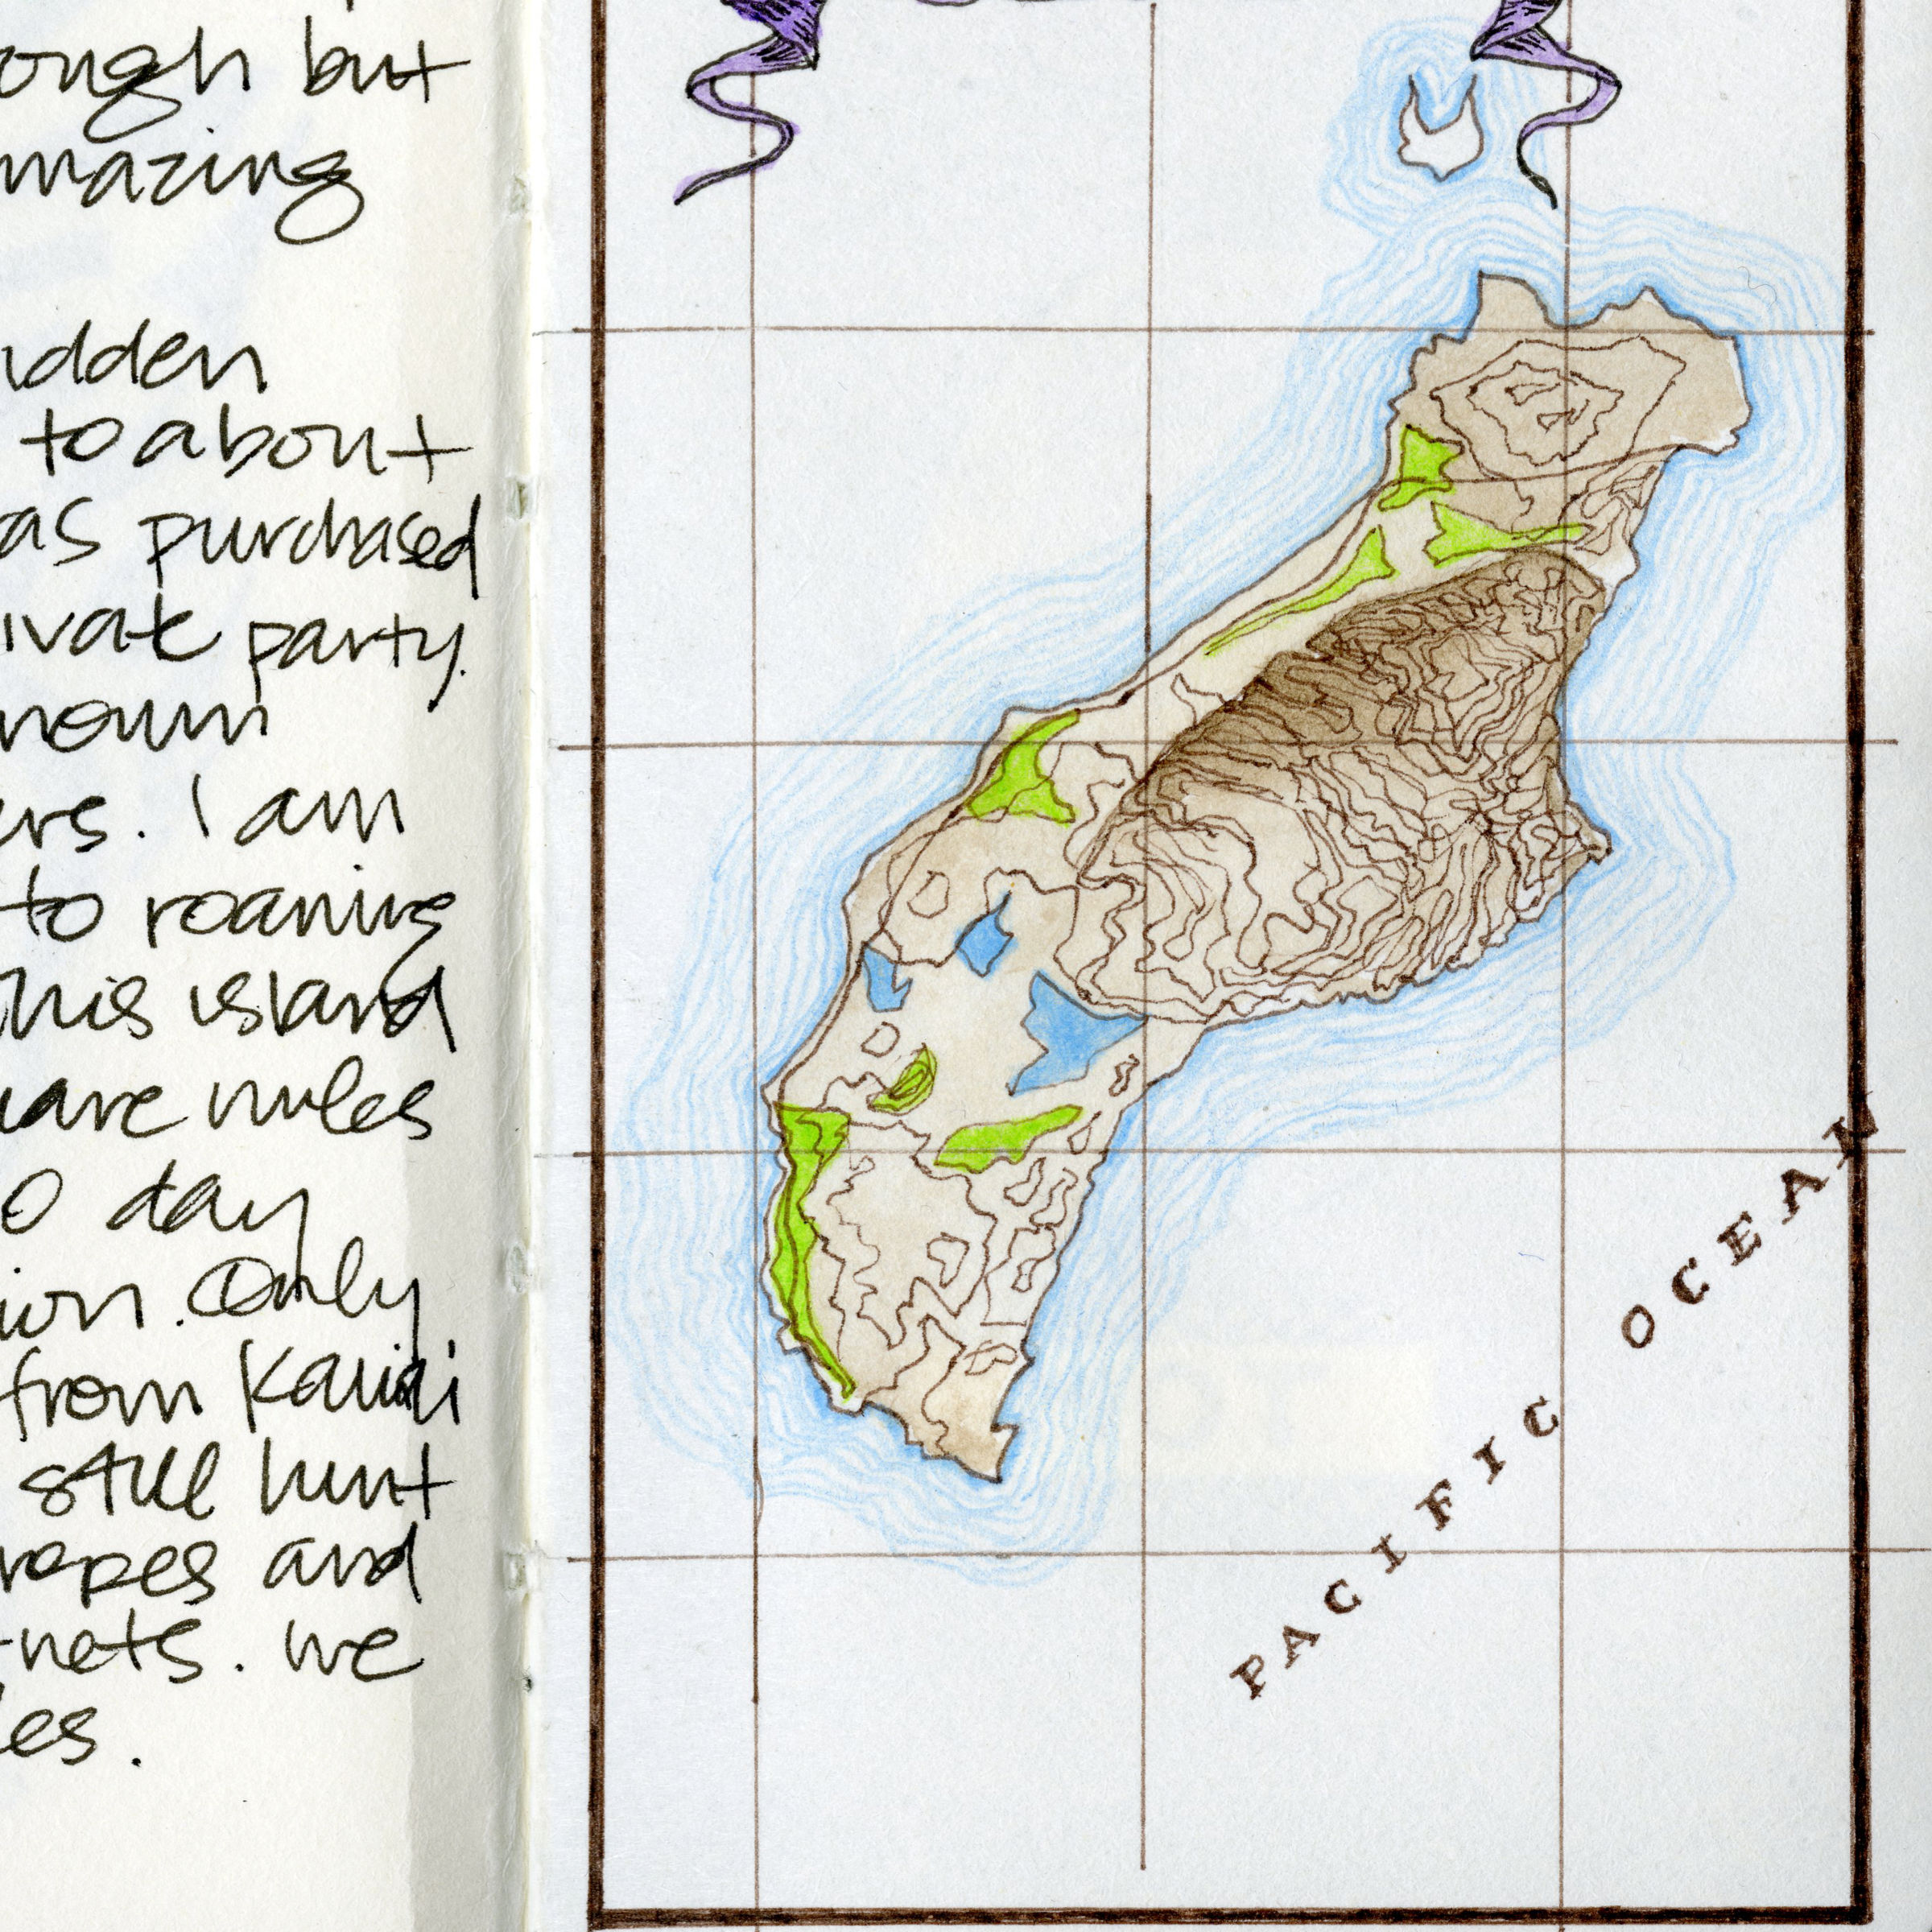 ough but
mazing
idden
to about
as purchased
ivate party.
nown
ers. I am
to roaming
this island
uare miles
0 day
ion. Only
from Kauai
still hunt
ropes and
-nets. we
les.
PACIFIC OCEAN